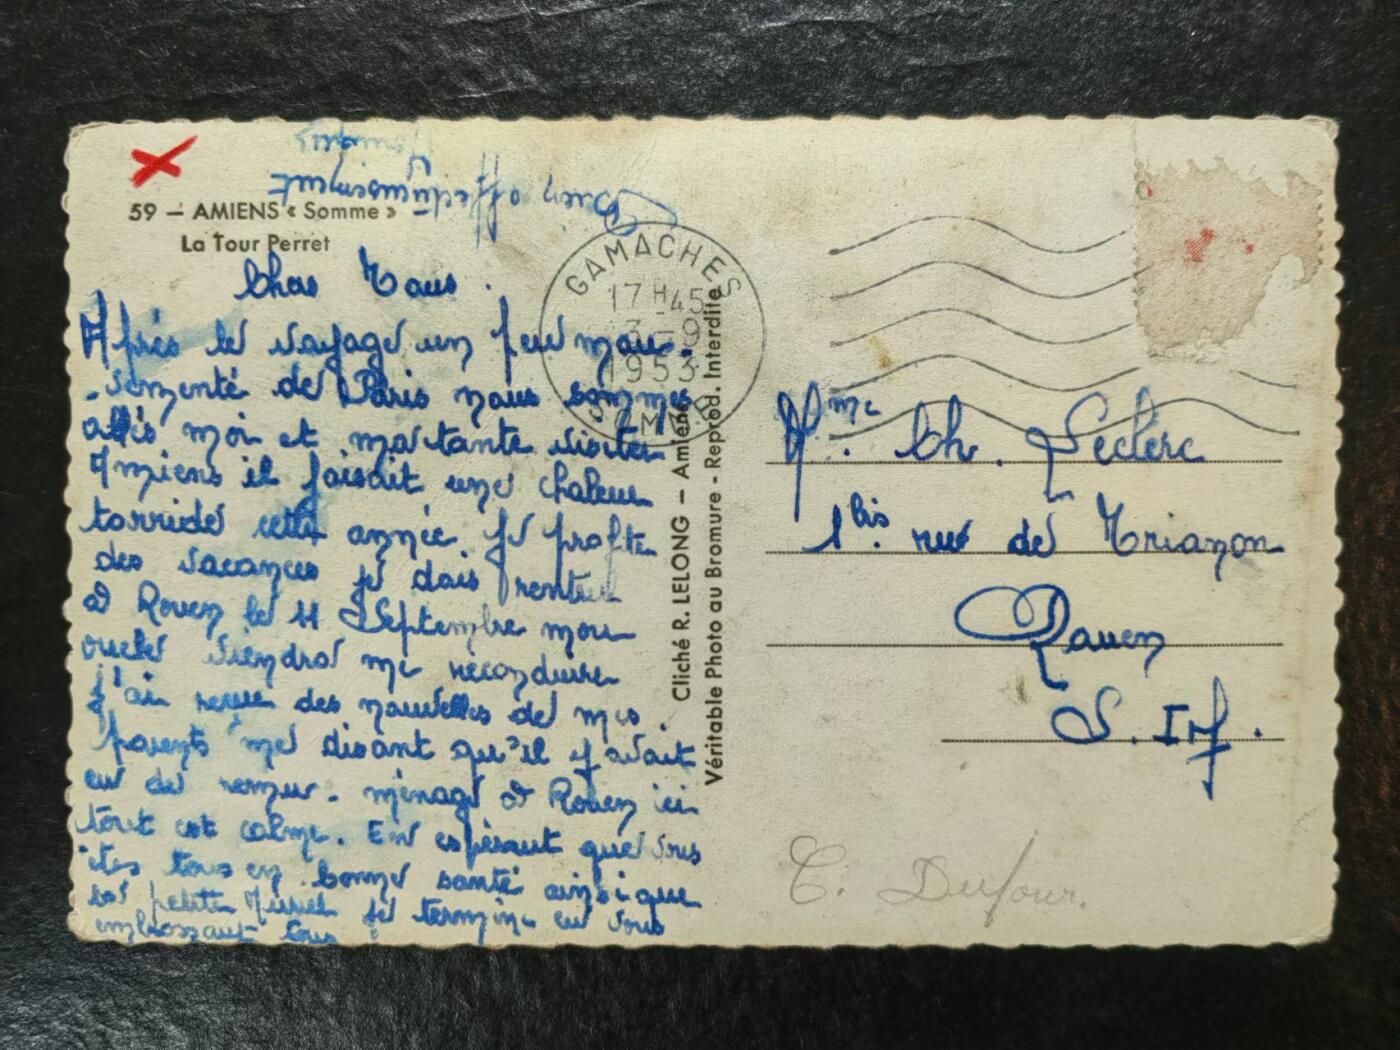 59 — AMIENS « Somme »
La Tour Perret
Chers Tous.
Après le voyage un peu mou-
-vementé de Paris nous sommes
allés moi et ma tante visiter
Amiens il faisait une chaleur
torride cette année je profite
des vacances je dois rentrer
à Rouen le 11 Septembre mon
oncle viendra me reconduire
j'ai reçue des nouvelles de mes
parents me disant qu'il y avait
eu de remue-ménage à Rouen ici
tout est calme. En espérant que vous
êtes tous en bonne santé ainsi que
la petite Muriel je termine en vous
embrassant tous
Bien affectueusement
GAMACHES
17 H 45
3 - 9
1953
SOMME
Cliché R. LELONG — Amiens
Véritable Photo au Bromure - Reprod. Interdite
Mme. Ch. Leclerc
1 bis rue de Trianon
Rouen
S. Inf.
T. Dufour.